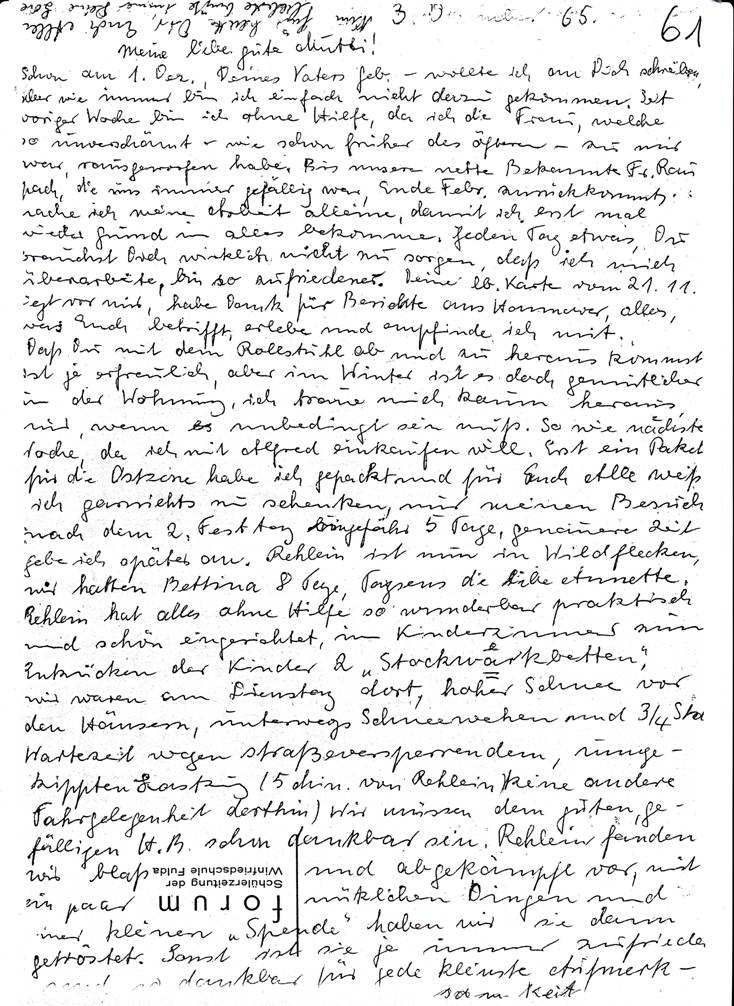 3. 65.
61
Meine liebe gute Mutti!
Schon am 1. Dez., Deines Vaters Geb. – wollte ich an Dich schreiben,
aber wie immer bin ich einfach nicht dazu gekommen. Seit
voriger Woche bin ich ohne Hilfe, da ich die Frau, welche
so unverschämt – wie schon früher des öfteren – zu mir
war, rausgeworfen habe. Bis unsere nette Bekannte Fr. Rau
pach, die uns immer gefällig war, Ende Febr. zurückkommt,
mache ich meine Arbeit alleine, damit ich erst mal
wieder Grund in alles bekomme. Jeden Tag etwas, Du
brauchst Dich wirklich nicht zu sorgen, daß ich mich
überarbeite, bin so zufriedener. Deine lb. Karte vom 21.11.
liegt vor mir, habe Dank für Berichte aus Hannover, alles,
was Euch betrifft, erlebe und empfinde ich mit.
Daß Du mit dem Rollstuhl ab und zu heraus kommst
ist ja erfreulich, aber im Winter ist es doch gemütlicher
in der Wohnung, ich traue mich kaum heraus,
nur, wenn es unbedingt sein muß. So wie nächste
Woche, da ich mit Alfred einkaufen will. Erst ein Paket
für die Ostzone habe ich gepackt und für Euch Alle weiß
ich garnichts zu schenken, nur meinen Besuch
nach dem 2. Festtag ungefähr 5 Tage, genauere Zeit
gebe ich später an. Rehlein ist nun in Wildflecken,
wir hatten Bettina 8 Tage, Tagsens die liebe Annette.
Rehlein hat alles ohne Hilfe so wunderbar praktisch
und schön eingerichtet, im Kinderzimmer zum
Entzücken der Kinder 2 „Stockwerkbetten",
wir waren am Dienstag dort, hoher Schnee vor
den Häusern, unterwegs Schneewehen und 3/4 Std
Wartezeit wegen straßeversperrendem, umge-
kippten Lastzug (5 Min. von Rehlein) keine andere
Fahrgelegenheit dorthin) Wir müssen dem guten, ge-
fälligen H.B. schon dankbar sein. Rehlein fanden
wir blaß und abgekämpft vor, mit
ein paar nützlichen Dingen und
einer kleinen „Spende" haben wir sie dann
getröstet. Sonst ist sie ja immer zufrieden
und so dankbar für jede kleinste Aufmerk-
samkeit
forum
Schülerzeitung der
Winfriedschule Fulda